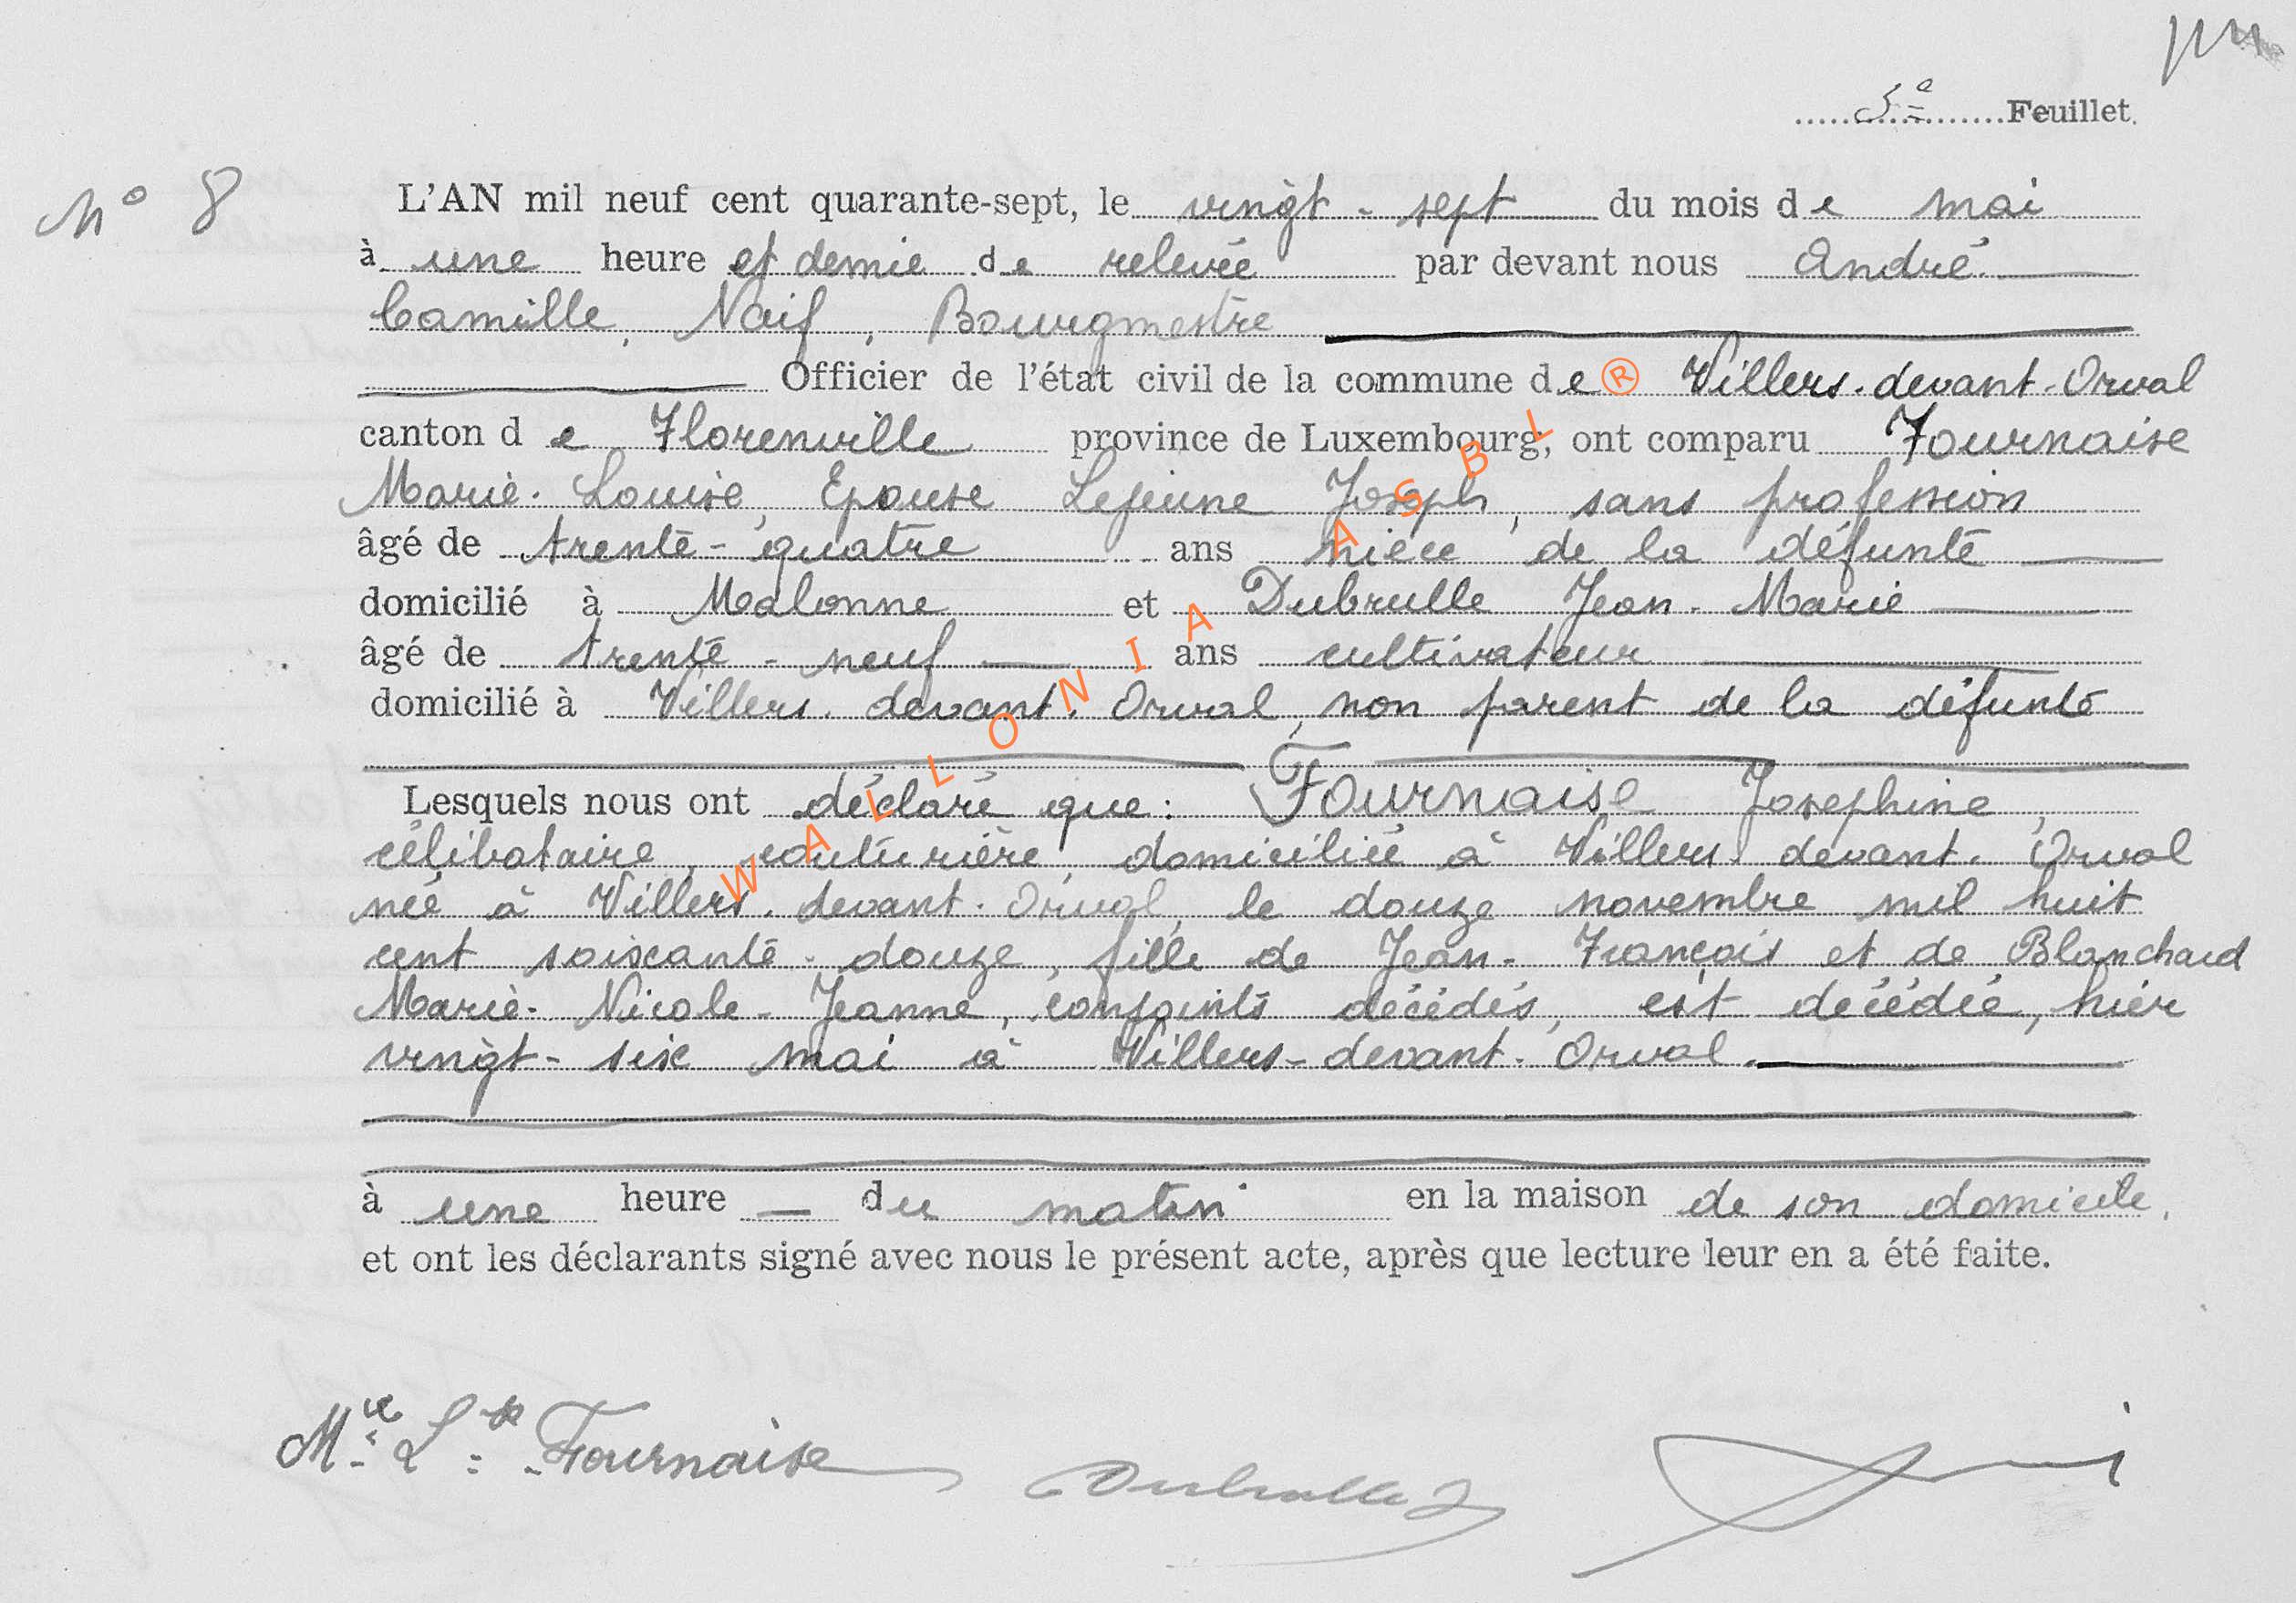 5e Feuillet.
N° 8
L'AN mil neuf cent quarante-sept, le vingt-sept du mois de mai
à une heure et demie de relevée par devant nous André
Camille, Naif, Bourgmestre
Officier de l'état civil de la commune de ® Villers-devant-Orval
canton de Florenville province de Luxembourg, ont comparu Fournaise
Marie-Louise, Epouse Lejeune Joseph, sans profession
âgé de trente-quatre ans nièce de la défunte
domicilié à Malonne et Dubrulle Jean-Marie
âgé de trente-neuf ans cultivateur
domicilié à Villers-devant-Orval, non parent de la défunte
Lesquels nous ont déclaré que: Fournaise Josephine,
célibataire, couturière, domiciliée à Villers-devant-Orval
née à Villers-devant-Orval, le douze novembre mil huit
cent soixante-douze, fille de Jean-François et de Blanchard
Marie-Nicole-Jeanne, conjoints décédés, est décédée, hier
vingt-six mai à Villers-devant-Orval.
à une heure — du matin en la maison de son domicile.
et ont les déclarants signé avec nous le présent acte, après que lecture leur en a été faite.
Mie Lse Fournaise Dubrulle J
WALLONIA ASBL